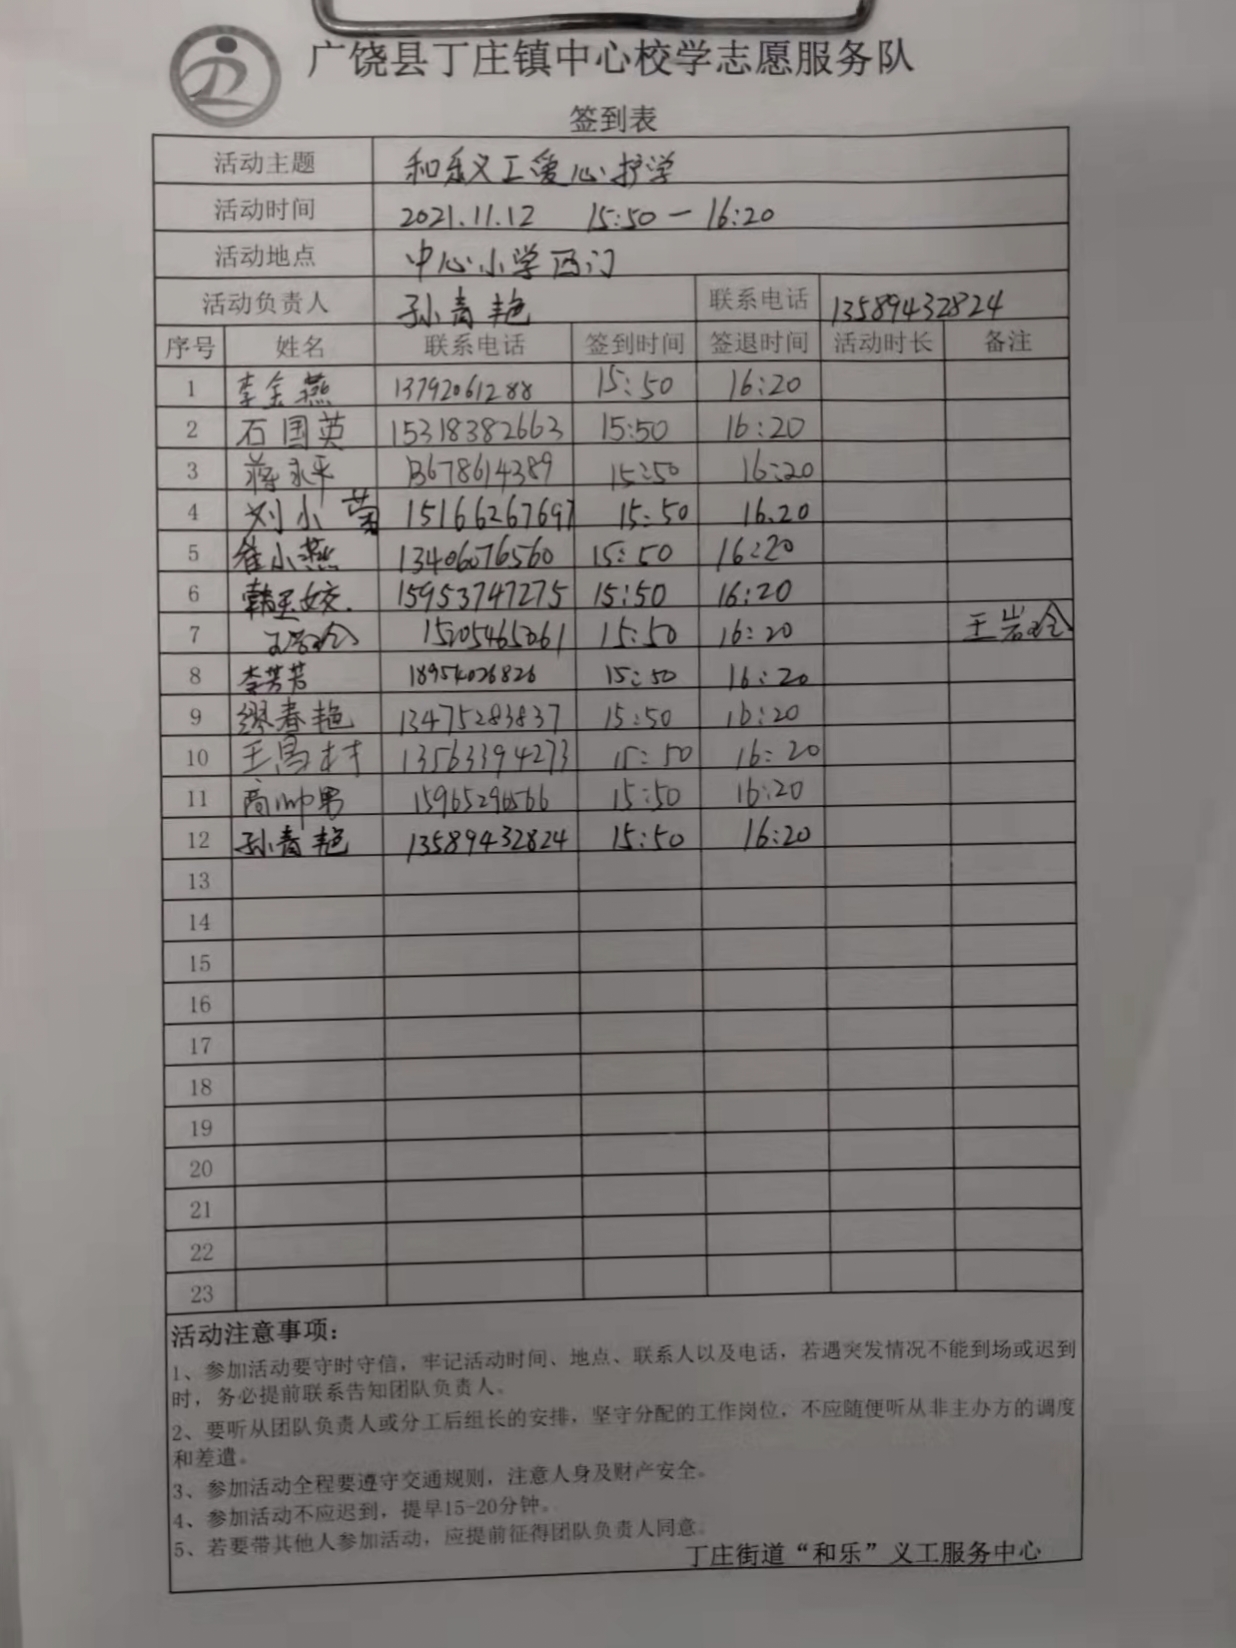 广饶县丁庄镇中心校学志愿服务队
签到表
活动主题 和乐义工爱心护学
活动时间 2021.11.12 15:50-16:20
活动地点 中心小学西门
活动负责人 孙青艳 联系电话 13589432824
序号 姓名 联系电话 签到时间 签退时间 活动时长 备注
1 李金燕 13792061288 15:50 16:20
2 石国英 15318382663 15:50 16:20
3 蒋永平 13678614389 15:50 16:20
4 刘小菊 15166267697 15:50 16.20
5 崔小燕 13406076560 15:50 16:20
6 韩玉姣. 15953747275 15:50 16:20
7 王岩玲 15205465061 15:50 16:20 王岩玲
8 李芳芳 18954026826 15:50 16:20
9 缪春艳 13475283837 15:50 16:20
10 王高村 13563394273 15:50 16:20
11 商帅男 15965290566 15:50 16:20
12 孙青艳 13589432824 15:50 16:20
13
14
15
16
17
18
19
20
21
22
23
活动注意事项：
1、参加活动要守时守信，牢记活动时间、地点、联系人以及电话，若遇突发情况不能到场或迟到
时，务必提前联系告知团队负责人。
2、要听从团队负责人或分工后组长的安排，坚守分配的工作岗位，不应随便听从非主办方的调度
和差遣。
3、参加活动全程要遵守交通规则，注意人身及财产安全。
4、参加活动不应迟到，提早15-20分钟。
5、若要带其他人参加活动，应提前征得团队负责人同意。
丁庄街道“和乐”义工服务中心